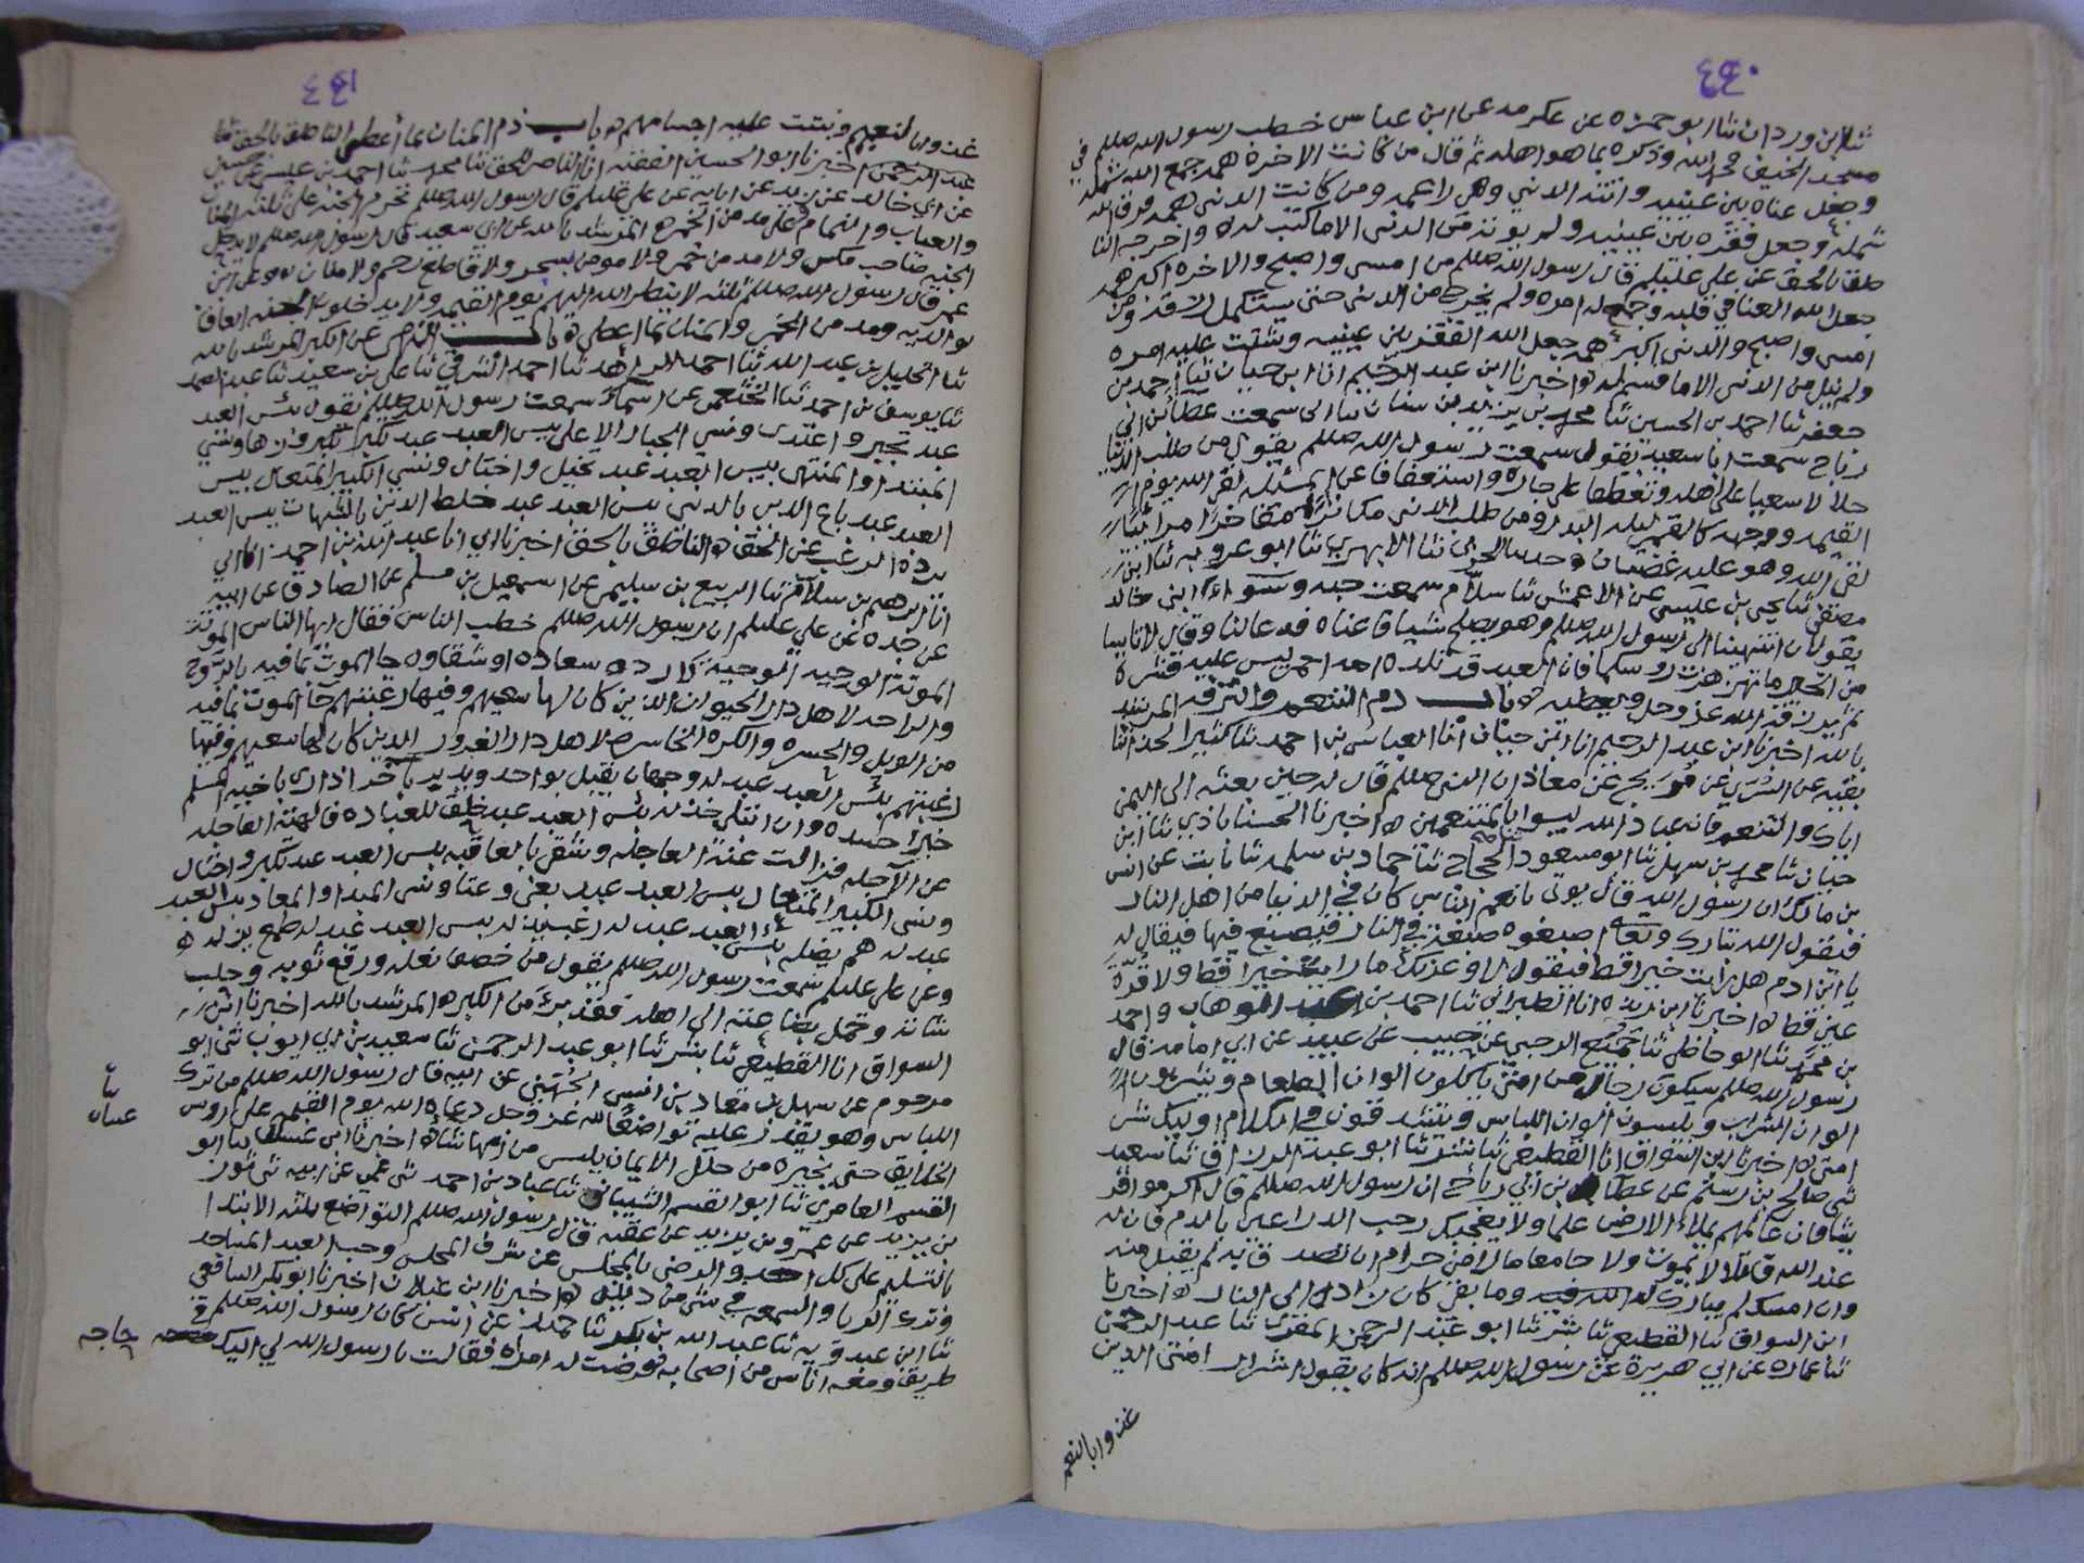 ٤٤٠
ابن وردان ثنا ابو حمزه عن عكرمه عن ابن عباس خطب رسول الله صللم في
مسجد الخيف فحمد الله وذكره بما هو اهله ثم قال من كانت الاخرة همه جمع الله شمله
وجعل غناه بين عينيه واتته الدني وهي راغمه ومن كانت الدنى همه فرق الله
شمله وجعل فقره بين عينيه ولم يوته من الدنى الا ما كتب له واخرجه النا
طق بالحق عن علي عليلم قال رسول الله صللم من امسى واصبح والاخره اكبر همه
جعل الله الغنا في قلبه وجمع له امره ولم يخرج من الدنى حتى يستكمل رزقه ومن
امسى واصبح والدنى اكبر همه جعل الله الفقر بين عينيه وشتت عليه امره
ولم ينل من الدنى الا ما قسم له اخبرنا ابن عبد الرحيم انا ابن حيان ثنا احمد بن
جعفر ثنا احمد بن الحسين ثنا محمد بن يزيد بن سنان ثنا ابى سمعت عطا بن ابي
رباح سمعت ابا سعيد يقول سمعت رسول الله صللم يقول من طلب الدنيا
حلالا سعيا على اهله وتعطفا على جاره واستعفافا عن المسئله لقى الله يوم
القيمه ووجهه كالقمر ليله البدر ومن طلب الدنى مكاثرا مفاخرا مرائيا
لقى الله وهو عليه غضبان ثنا الابهري ثنا ابو عروبه ثنا ابن
مصفى ثنا يحيى بن عيسى عن الاعمش ثنا سلام سمعت حبه وسواء ابنى خالد
يقولان انتهينا الى رسول الله صللم وهو يصلح شيا فاعناه فدعا لنا وقال لا تايسا
من الخير ما تهزهزت روسكما فان العبد قد تلده امه احمر ليس عليه قشره
ثم يرزقه الله عز وجل ويعطيه باب ذم التنعم والترفه المرشد
بالله اخبرنا ابن عبد الرحيم انا ابن حيان انا العباس بن احمد ثنا كثير الحذا ثنا
بقيه عن السري عن مريح عن معاذ ان النبي صللم قال له حين بعثه الى اليمن
اياك والتنعم فان عباد الله ليسوا بالمتنعمين اخبرنا الحسناباذي ثنا ابن
حيان ثنا محمد بن سهل ثنا ابو مسعود الحجاج ثنا حماد بن سلمه ثنا ثابت عن انس
بن مالك ان رسول الله قال يوتى بانعم الناس كان في الدنيا من اهل النار
فيقول الله تبارك وتعالى اصبغوه صبغة في النار فيصبغ فيها فيقال له
يا ابن ادم هل رايت خيرا قط فيقول لا وعزتك ما رايت خيرا قط ولا قرة
عين قط اخبرنا ابن ريذه انا الطبراني ثنا احمد بن عبد الوهاب واحمد
بن محمد ثنا ابو حاضر ثنا جميع الرحبي عن حبيب عن عبيد عن ابي امامه قال
رسول الله صللم سيكون رجال من امتى ياكلون الوان الطعام ويشربون
الوان الشراب ويلبسون الوان اللباس ويتشدقون في الكلام اوليك شر
امتى اخبرنا ابن السواق انا القطيعي ثنا بشر ثنا ابو عبد الرزاق ثنا سعيد
ثنى صالح بن رستم عن عطا بن ابي رباح ان رسول الله صللم قال اكرموا قر
يشا فان عالمهم يملاء الارض علما ولا يعجبك رحب الذراعين بالدم فان له
عند الله قاتلا لا يموت ولا جامعا مالا من حرام ان تصدق فانه لم يقبل منه
وان امسك لم يبارك له الله فيه وما بقى كان زاده الى النار اخبرنا
ابن السواق ثنا القطيعي ثنا بشر ثنا ابو عبد الرحمن المقري ثنا عبد الرحمن
ثنا عماره عن ابي هريرة عن رسول الله صللم انه كان يقول شرار امتى الذين
غذوا بالنعيم
٤٤١
غذوا بالنعيم ونبتت عليه اجسامهم باب ذم المنان بما أعطى الناطق بالحق ثنا
عبد الرحمن اخبرنا ابو الحسين الفقيه انا الناصر للحق ثنا محمد ثنا احمد بن عيسى عن حسين
عن ابي خالد عن زيد عن ابايه عن علي عليلم قال رسول الله صللم تحرم الجنه على ثلثه المنا
والعياب والنمام وعلى مدمن الخمر المرشد بالله عن ابي سعيد قال رسول الله صللم لا يدخل
الجنه صاحب مكس ولا مدمن خمر ولا مومن بسحر ولا قاطع رحم ولا منان وعن ابن
عمر قال رسول الله صللم ثلثه لا ينظر الله اليهم يوم القيمه ولا يدخلون الجنه العاق
لوالديه ومدمن الخمر والمنان بما اعطى باب النهي عن الكبر المرشد بالله
ثنا الخليل بن عبد الله ثنا احمد الزاهد ثنا احمد الشرقي ثنا علي بن سعيد ثنا عبد الصمد
ثنا يوسف بن احمد ثنا الخثعمي عن اسماء سمعت رسول الله صللم يقول بئس العبد
عبد تجبر واعتدى ونسي الجبار الاعلى بيس العبد عبد تكبر وزها ونسي
المبتدا والمنتهى بيس العبد عبد تخيل واختال ونسي الكبير المتعال بيس
العبد عبد باع الدين بالدنى بيس العبد عبد خلط الدين بالشبهات بيس العبد
يرده الرغب عن الحق الناطق بالحق اخبرنا ابي انا عبد الله بن احمد انا ابي
انا ابرهيم بن سلام ثنا الربيع بن سليم عن اسمعيل بن مسلم عن الصادق عن ابيه
عن جده عن علي عليلم ان رسول الله صللم خطب الناس فقال ايها الناس الموتة
الموتة الوحيه الوحيه لا رده سعاده او شقاوه جا الموت بما فيه بالروح
والراحه لاهل دار الحيوان الذين كان لها سعيهم وفيها رغبتهم جا الموت بما فيه
من الويل والحسره والكره الخاسره لاهل دار الغرور الذين كان لها سعيهم وفيها
رغبتهم بئس العبد عبد له وجهان يقبل بواحد ويدبر باخر اذا راى باخيه المسلم
خيرا حسده وان ابتلى خذله بئس العبد عبد خلق للعباده فالهته العاجله
عن الاجله فزالت عنه العاجله وشقى بالعاقبه بيس العبد عبد تكبر واختال
ونسى الكبير المتعال بيس العبد عبد بغى وعتا ونسى المبدا والمعاد بئس العبد
عبد له هم يضله بئس العبد عبد له رغب يذله بيس العبد عبد له طمع يزله
وعن علي عليلم سمعت رسول الله صللم يقول من خصف نعله ورقع ثوبه وحلب
شاته وحمل بضاعته الى اهله فقد برئ من الكبر المرشد بالله اخبرنا ابن
السواق انا القطيعي ثنا بشر ثنا ابو عبد الرحمن ثنا سعيد بن ابي ايوب ثنى ابو
مرحوم عن سهل بن معاذ بن انس الجهني عن ابيه قال رسول الله صللم من ترك
اللباس وهو يقدر عليه تواضعا لله عز وجل دعاه الله يوم القيمه على روس
الخلايق حتى يخيره من حلل الايمان يلبس من ايها شاء اخبرنا ابن غسان ثنا ابو
القسم العامري ثنا ابو القسم الشيباني ثنا عباد بن احمد ثنى عمي عن ابيه ثنى ثور
بن يزيد عن عمرو بن يزيد عن عقبه قال رسول الله صللم التواضع ثلثه الابتدا
بالتسليم على كل احد والرضى بالمجلس عن شرف المجلس وحب العبد المساجد
وترك الريا والسمعه في شى من دينه اخبرنا ابن غيلان اخبرنا ابو بكر الشافعي
ثنا ابن عبدويه ثنا عبد الله بن بكر ثنا حميد عن انس كان رسول الله صللم في
طريق ومعه اناس من اصحابه فعرضت له امراه فقالت يا رسول الله لي اليك حاجه